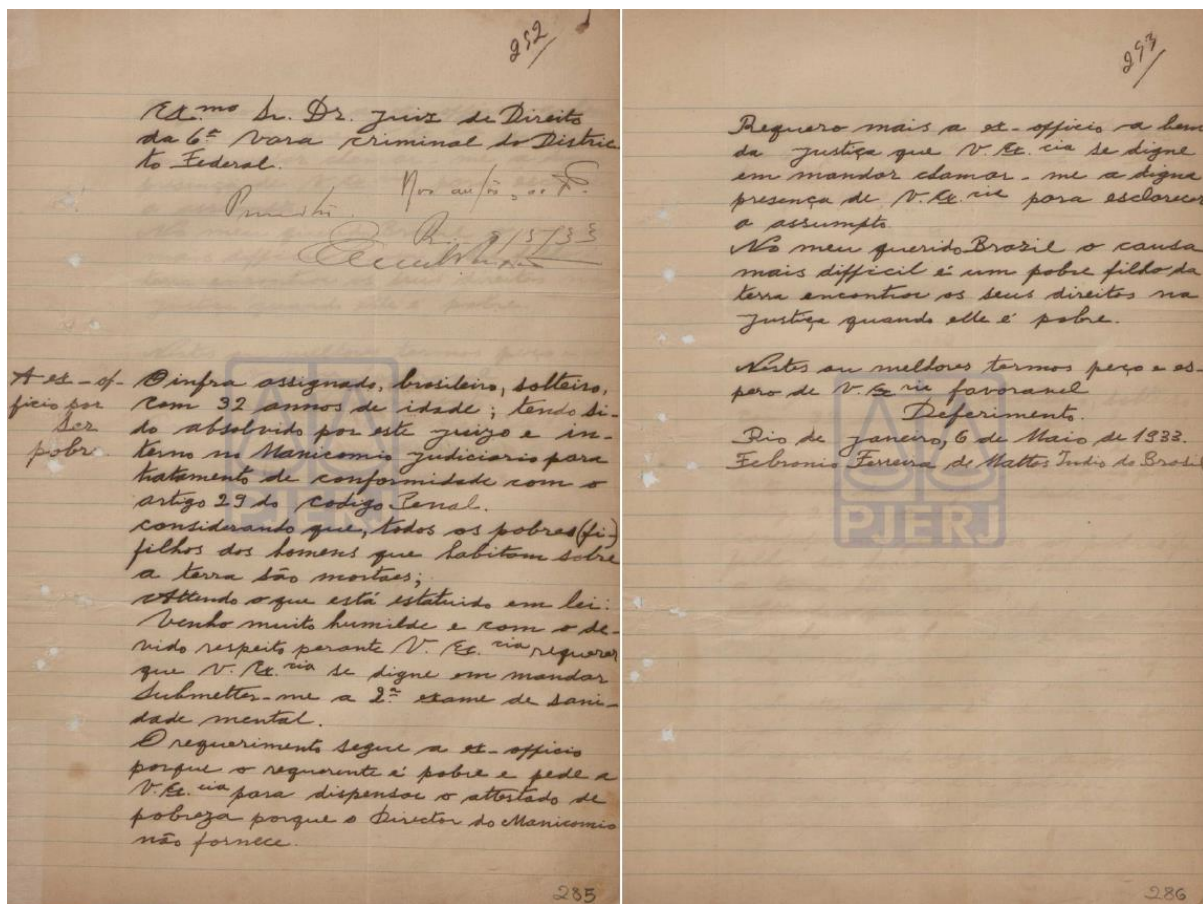 252
Ex.mo Sr. Dr. Juiz de Direito
da 6ª Vara criminal do Distric
to Federal.
A ex-of-
ficio por
Ser
pobre
O infra assignado, brasileiro, solteiro,
com 32 annos de idade; tendo si-
do absolvido por este juizo e in-
terno no Manicomio judiciario para
tratamento de conformidade com o
artigo 29 do codigo Penal.
considerando que, todos os pobres (fi-)
filhos dos homens que habitam sobre
a terra são mortaes;
Attendo o que está estatuido em lei:
Venho muito humilde e com o de-
vido respeito perante V. Ex.cia requerer
que V. Ex.cia se digne em mandar
Submetter-me a 2º exame de sani-
dade mental.
O requerimento segue a ex-officio
porque o requerente é pobre e pede a
V. Ex.cia para dispensar o attestado de
pobreza porque o Director do Manicomio
não fornece.
285
PJERJ
253
Requero mais a ex-officio a bem
da justiça que V. Ex.cia se digne
em mandar chamar-me a digna
presença de V. Ex.cie para esclarecer
o assumpto
No meu querido Brazil o causa
mais difficil é um pobre filho da
terra encontrar os seus direitos na
justiça quando elle é pobre.
Nestes ou melhores termos peço e es-
pero de V. Ex.cie favoravel
Deferimento.
Rio de janeiro, 6 de Maio de 1933.
Febronio Ferreira de Mattos Indio do Brasil
286
PJERJ